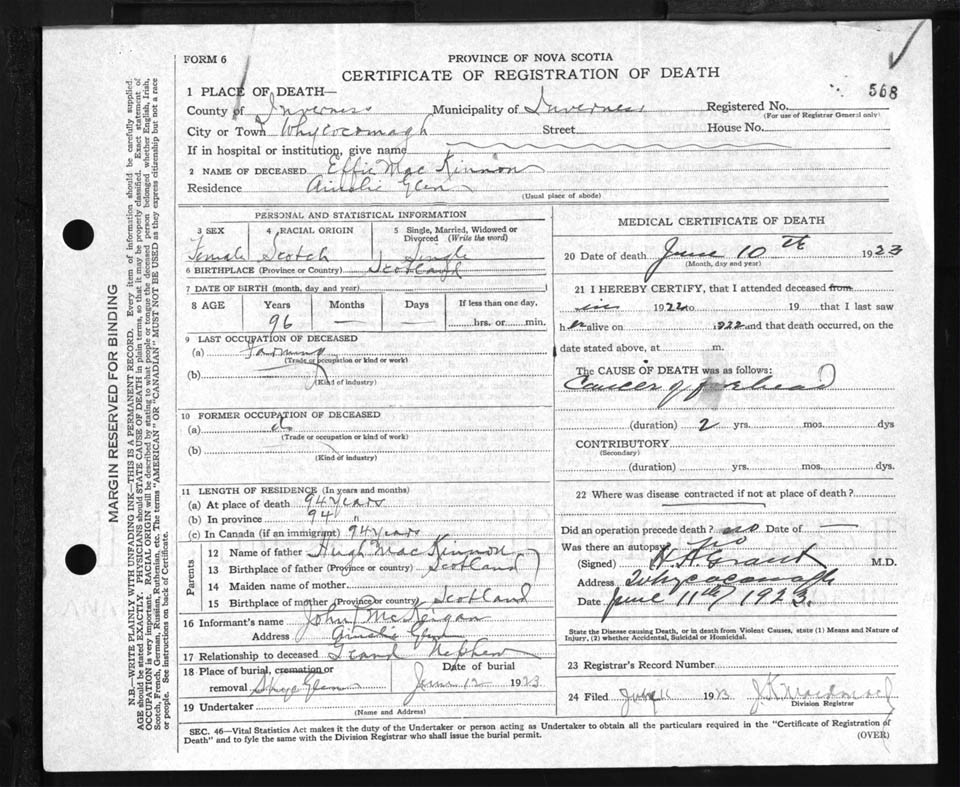 FORM 6
PROVINCE OF NOVA SCOTIA
CERTIFICATE OF REGISTRATION OF DEATH
568
1 PLACE OF DEATH—
County of Inverness Municipality of Inverness Registered No.
(For use of Registrar General only)
City or Town Whycocomagh Street House No.
If in hospital or institution, give name
2 NAME OF DECEASED Effie Mac Kinnon
Residence Ainslie Glen
(Usual place of abode)
PERSONAL AND STATISTICAL INFORMATION
3 SEX 4 RACIAL ORIGIN 5 Single, Married, Widowed or Divorced (Write the word)
Female Scotch Single
6 BIRTHPLACE (Province or Country) Scotland
7 DATE OF BIRTH (month, day and year)
8 AGE Years Months Days If less than one day,
96 — hrs. or min.
9 LAST OCCUPATION OF DECEASED
(a) Farming
(Trade or occupation or kind or work)
(b)
(Kind of industry)
10 FORMER OCCUPATION OF DECEASED
(a) do
(Trade or occupation or kind of work)
(b)
(Kind of industry)
11 LENGTH OF RESIDENCE (In years and months)
(a) At place of death 94 years
(b) In province 94 "
(c) In Canada (if an immigrant) 94 years
Parents
12 Name of father Hugh Mac Kinnon
13 Birthplace of father (Province or country) Scotland
14 Maiden name of mother
15 Birthplace of mother (Province or country) Scotland
16 Informant's name John
Address Ainslie Glen
17 Relationship to deceased Grand Nephew
18 Place of burial, cremation or removal Skye Glen Date of burial June 12 1923
19 Undertaker
(Name and Address)
MEDICAL CERTIFICATE OF DEATH
20 Date of death June 10th 1923
(Month, day and year)
21 I HEREBY CERTIFY, that I attended deceased from
1922 to 19 that I last saw
her alive on 1922 and that death occurred, on the
date stated above, at m.
The CAUSE OF DEATH was as follows:
Cancer of forehead
(duration) 2 yrs. mos. dys
CONTRIBUTORY
(Secondary)
(duration) yrs. mos. dys.
22 Where was disease contracted if not at place of death?
Did an operation precede death? no Date of —
Was there an autopsy no
(Signed) H. A. Grant M.D.
Address Whycocomagh
Date June 11th 1923.
State the Disease causing Death, or in death from Violent Causes, state (1) Means and Nature of
Injury, (2) whether Accidental, Suicidal or Homicidal.
23 Registrar's Record Number
24 Filed 11 1923
Division Registrar
SEC. 46—Vital Statistics Act makes it the duty of the Undertaker or person acting as Undertaker to obtain all the particulars required in the "Certificate of Registration of
Death" and to fyle the same with the Division Registrar who shall issue the burial permit.
(OVER)
MARGIN RESERVED FOR BINDING
N.B.—WRITE PLAINLY WITH UNFADING INK—THIS IS A PERMANENT RECORD. Every item of information should be carefully supplied.
AGE should be stated EXACTLY. PHYSICIANS should STATE CAUSE OF DEATH in plain terms, so that it may be properly classified. Exact statement of
OCCUPATION is very important. RACIAL ORIGIN will be described by stating to what people or tongue the deceased person belonged whether English, Irish,
Scotch, French, German, Russian, Ruthenian, etc. The terms "AMERICAN" or "CANADIAN" MUST NOT BE USED as they express citizenship but not a race
or people. See instructions on back of Certificate.